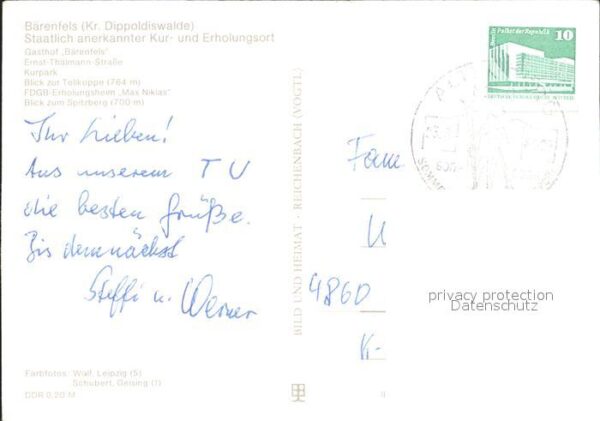 Bärenfels (Kr. Dippoldiswalde)
Staatlich anerkannter Kur- und Erholungsort
Gasthof „Bärenfels"
Ernst-Thälmann-Straße
Kurpark
Blick zur Tellkoppe (764 m)
FDGB-Erholungsheim „Max Niklas"
Blick zum Spitzberg (700 m)
Ihr Lieben!
Aus unserem TU
die besten Grüße.
Bis demnächst
Steffi u. Werner
Farbfotos: Wolf, Leipzig (5)
Schubert, Geising (1)
DDR 0,20 M
BILD UND HEIMAT · REICHENBACH (VOGTL)
Palast der Republik
10
Fam
4860
K-
privacy protection
Datenschutz